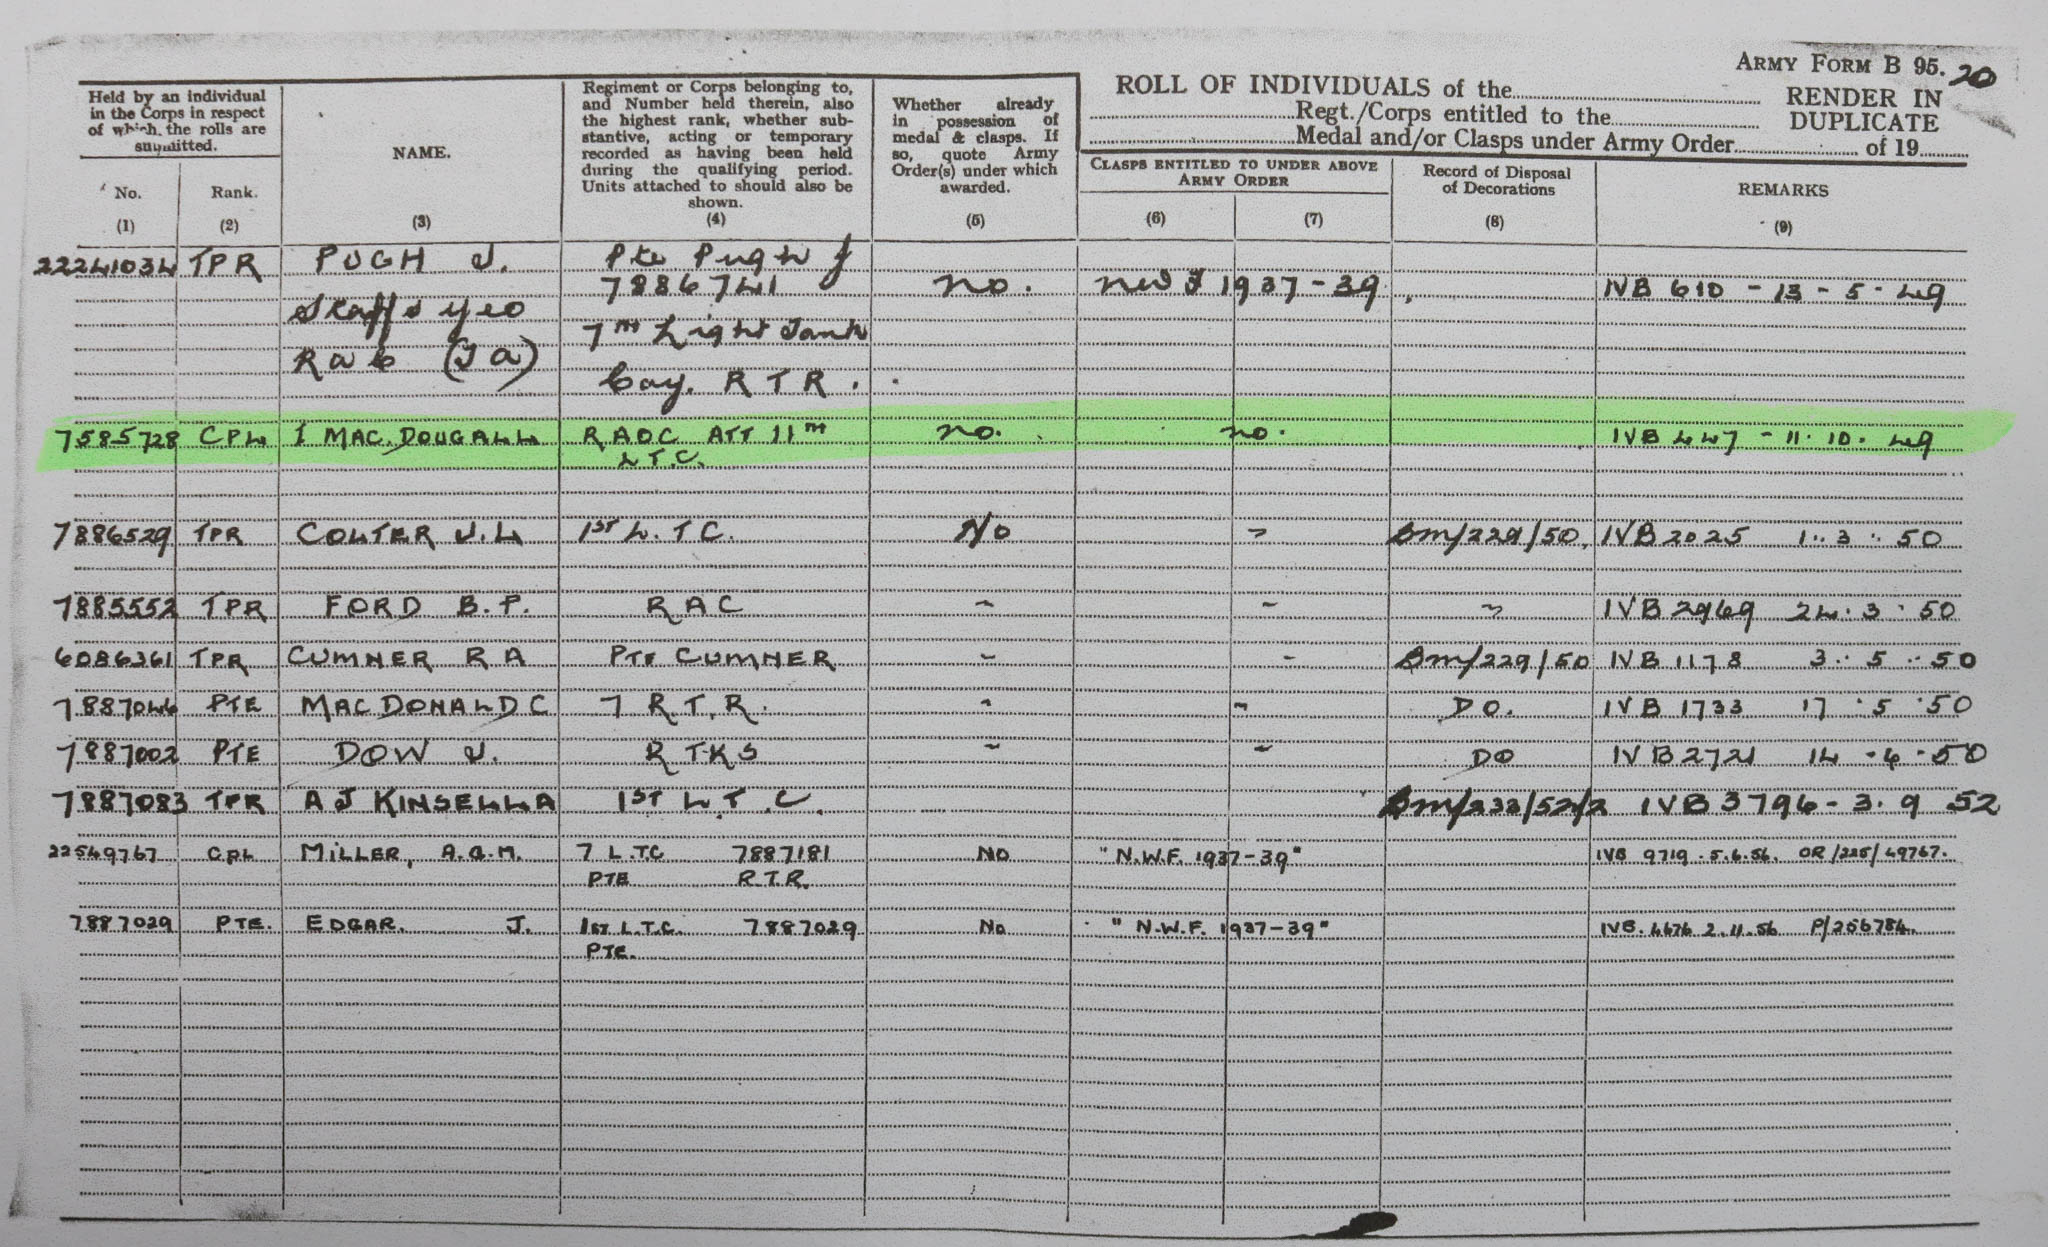 ARMY FORM B 95. 20
ROLL OF INDIVIDUALS of the
RENDER IN
DUPLICATE
Regt./Corps entitled to the
Medal and/or Clasps under Army Order of 19
Held by an individual
in the Corps in respect
of which the rolls are
submitted.
No.
(1)
Rank.
(2)
NAME.
(3)
Regiment or Corps belonging to,
and Number held therein, also
the highest rank, whether sub-
stantive, acting or temporary
recorded as having been held
during the qualifying period.
Units attached to should also be
shown.
(4)
Whether already
in possession of
medal & clasps. If
so, quote Army
Order(s) under which
awarded.
(5)
CLASPS ENTITLED TO UNDER ABOVE
ARMY ORDER
(6) (7)
Record of Disposal
of Decorations
(8)
REMARKS
(9)
22241034 TPR PUGH J. Pte Pugh J
7886741 no. NWF 1937-39 IVB 610 - 13 - 5 - 49
Staffs Yeo
7TH Light Tank
RAC (TA)
Coy. R T R.
7585728 CPL I MAC.DOUGALL RAOC ATT 11TH no. no. IVB 447 - 11.10.49
L.T.C.
7886529 TPR COLTER J.L 1ST L.T.C. No " Bm/229/50 IVB 2025 1..3..50
7885552 TPR FORD B.P. RAC " " " IVB 2969 24.3.50
6086361 TPR CUMNER R A PTE CUMNER " " Bm/229/50 IVB 1178 3..5..50
7887046 PTE MACDONALD C 7 R.T.R. " " DO. IVB 1733 17.5.50
7887002 PTE DOW J. R TKS " " DO IVB 2721 14-6-50
7887083 TPR A J KINSELLA 1ST L.T.C. Bm/232/52/2 IVB 3796 - 3.9 52
22549767 CPL MILLER, A.G.M. 7 L.T.C 7887181 NO "N.W.F. 1937-39" IVB 9719.5.6.56. OR/225/49767.
PTE R.T.R.
7887029 PTE. EDGAR. J. 1ST L.T.C. 7887029 No "N.W.F. 1937-39" IVB.4676 2.11.56 P/256784.
PTE.